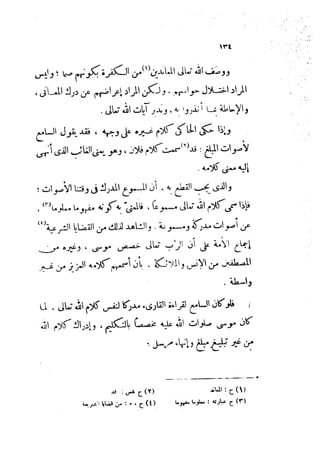 ١٣٤
ووصف الله تعالى المعاندين(١) من الكفرة بكونهم صما ؛ وليس
المراد اختلال حواسهم. ولكن المراد إعراضهم عن درك المعانى،
والإحاطة بما أنذروا به، وتدبر آيات الله تعالى.
وإذا حكى الحاكى كلام غيره على وجهه، فقد يقول السامع
لأصوات المبلغ : قد(٢) سمعت كلام فلان، وهو يعنى الغائب الذى أنهى
إليه معنى كلامه.
والذى يجب القطع به. أن المسموع المدرك فى وقتنا الأصوات ؛
فإذا سمى كلام الله تعالى مسموعا. فالمعنى به كونه مفهوما معلوما(٣)،
عن أصوات مدركة ومسموعة. والشاهد لذلك من القضايا الشرعية(٤)
إجماع الأمة على أن الرب تعالى خصص موسى، وغيره من
المصطفين من الإنس والملائكة. بأن أسمعهم كلامه العزيز من غير
واسطة.
فلو كان السامع لقراءة القارىء، مدركا لنفس كلام الله تعالى. لما
كان موسى صلوات الله عليه مخصصا بالتكليم، وإدراك كلام الله
من غير تبليغ مبلغ وإنهاء مرسل ؛
(١) ح : المعاند
(٢) ح نقص : قد
(٣) ح عبارته : معلوما مفهوما
(٤) ح، م : من قضايا الشريعة